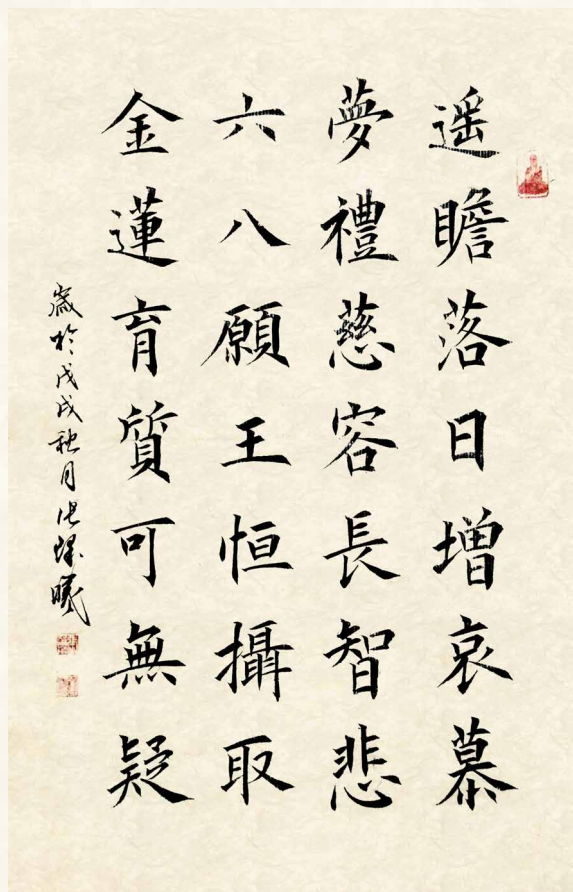 遥瞻落日增哀慕
夢禮慈容長智悲
六八願王恒攝取
金蓮育質可無疑
歲於戊戌秋月